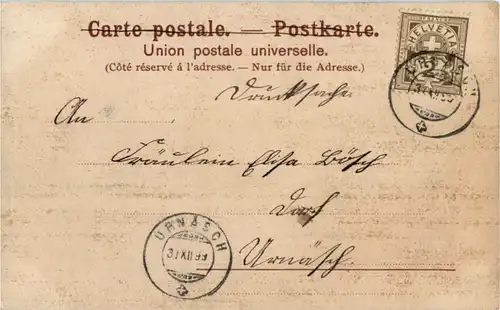 Carte postale. — Postkarte.
Union postale universelle.
(Côté réservé à l'adresse. — Nur für die Adresse.)
HELVETIA
2
Drucksache
An
Fräulein Elisa Bösch
Dorf
Urnäsch.
URNÄSCH